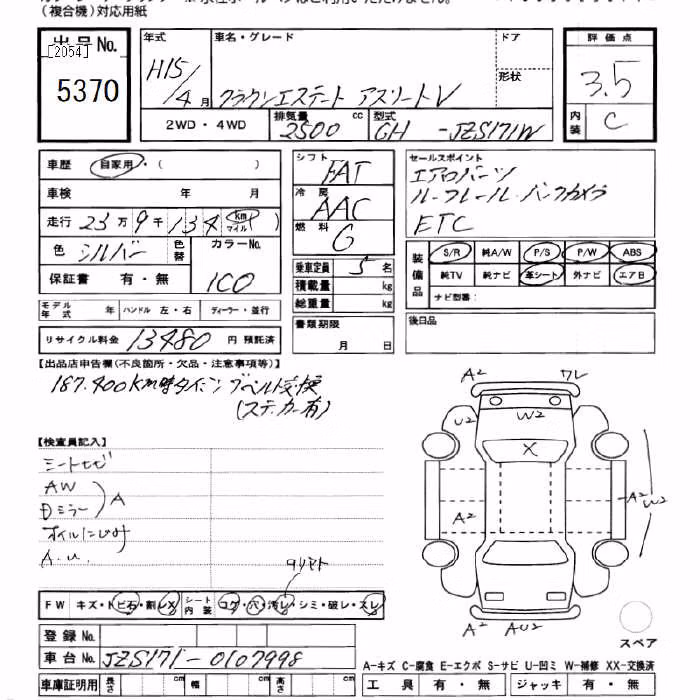 （複合機）対応用紙
出品No.
[2054]
5370
年式
H15/4月
車名・グレード
クラウンエステート アスリートV
ドア
形状
2WD・4WD
排気量
2500
cc
型式
GH -JZS171W
評価点
3.5
内装
C
車歴 自家用・( )
車検 年 月
走行 23万9千134 km マイル )
色 シルバー 色替 カラーNo. 1C0
保証書 有・無
モデル年式 年 ハンドル 左・右 ディーラー・並行
リサイクル料金 13480 円 預託済
シフト FAT
冷房 AAC
燃料 G
乗車定員 5 名
積載量 kg
総重量 kg
書類期限
月 日
セールスポイント
エアロパーツ
ルーフレール・バックカメラ
ETC
装備品
S/R 純A/W P/S P/W ABS
純TV 純ナビ 革シート 外ナビ エアB
ナビ型番：
後日品
【出品店申告欄(不良箇所・欠品・注意事項等)】
187.400km時タイミングベルト交換
(ステッカー有)
【検査員記入】
シートセビ
AW
Dミラー
A
オイルにじみ
A.U.
クリヤト
FW キズ・トビ石・割レX シート内装 コゲ・穴・汚レ・シミ・破レ・スレ
登録No.
車台No. JZS171-0107998
車庫証明用 長さ cm 幅 cm 高さ cm
A2
ワレ
U2
W2
X
A2
A2
W2
A2
AU2
スペア
A-キズ C-腐食 E-エクボ S-サビ U-凹ミ W-補修 XX-交換済
工具 有・無 ジャッキ 有・無